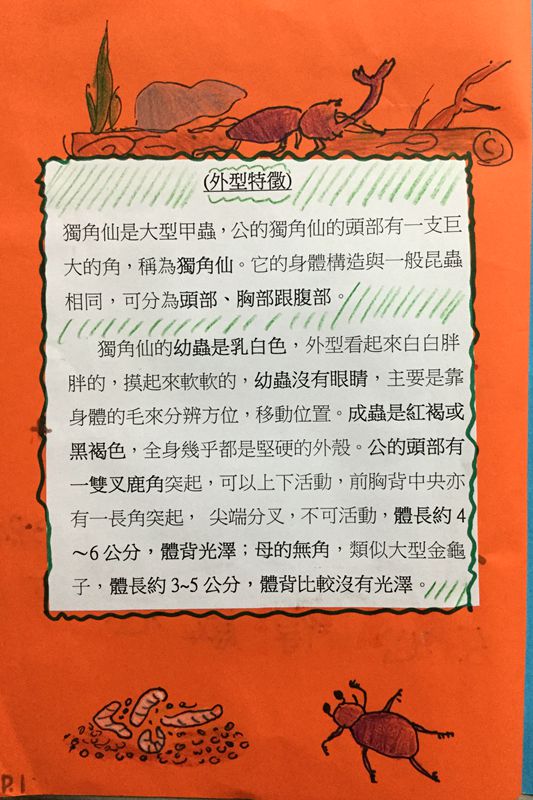 (外型特徵)
獨角仙是大型甲蟲，公的獨角仙的頭部有一支巨
大的角，稱為獨角仙。它的身體構造與一般昆蟲
相同，可分為頭部、胸部跟腹部。
獨角仙的幼蟲是乳白色，外型看起來白白胖
胖的，摸起來軟軟的，幼蟲沒有眼睛，主要是靠
身體的毛來分辨方位，移動位置。成蟲是紅褐或
黑褐色，全身幾乎都是堅硬的外殼。公的頭部有
一雙叉鹿角突起，可以上下活動，前胸背中央亦
有一長角突起， 尖端分叉，不可活動，體長約 4
～6 公分，體背光澤；母的無角，類似大型金龜
子，體長約 3~5 公分，體背比較沒有光澤。
P.1